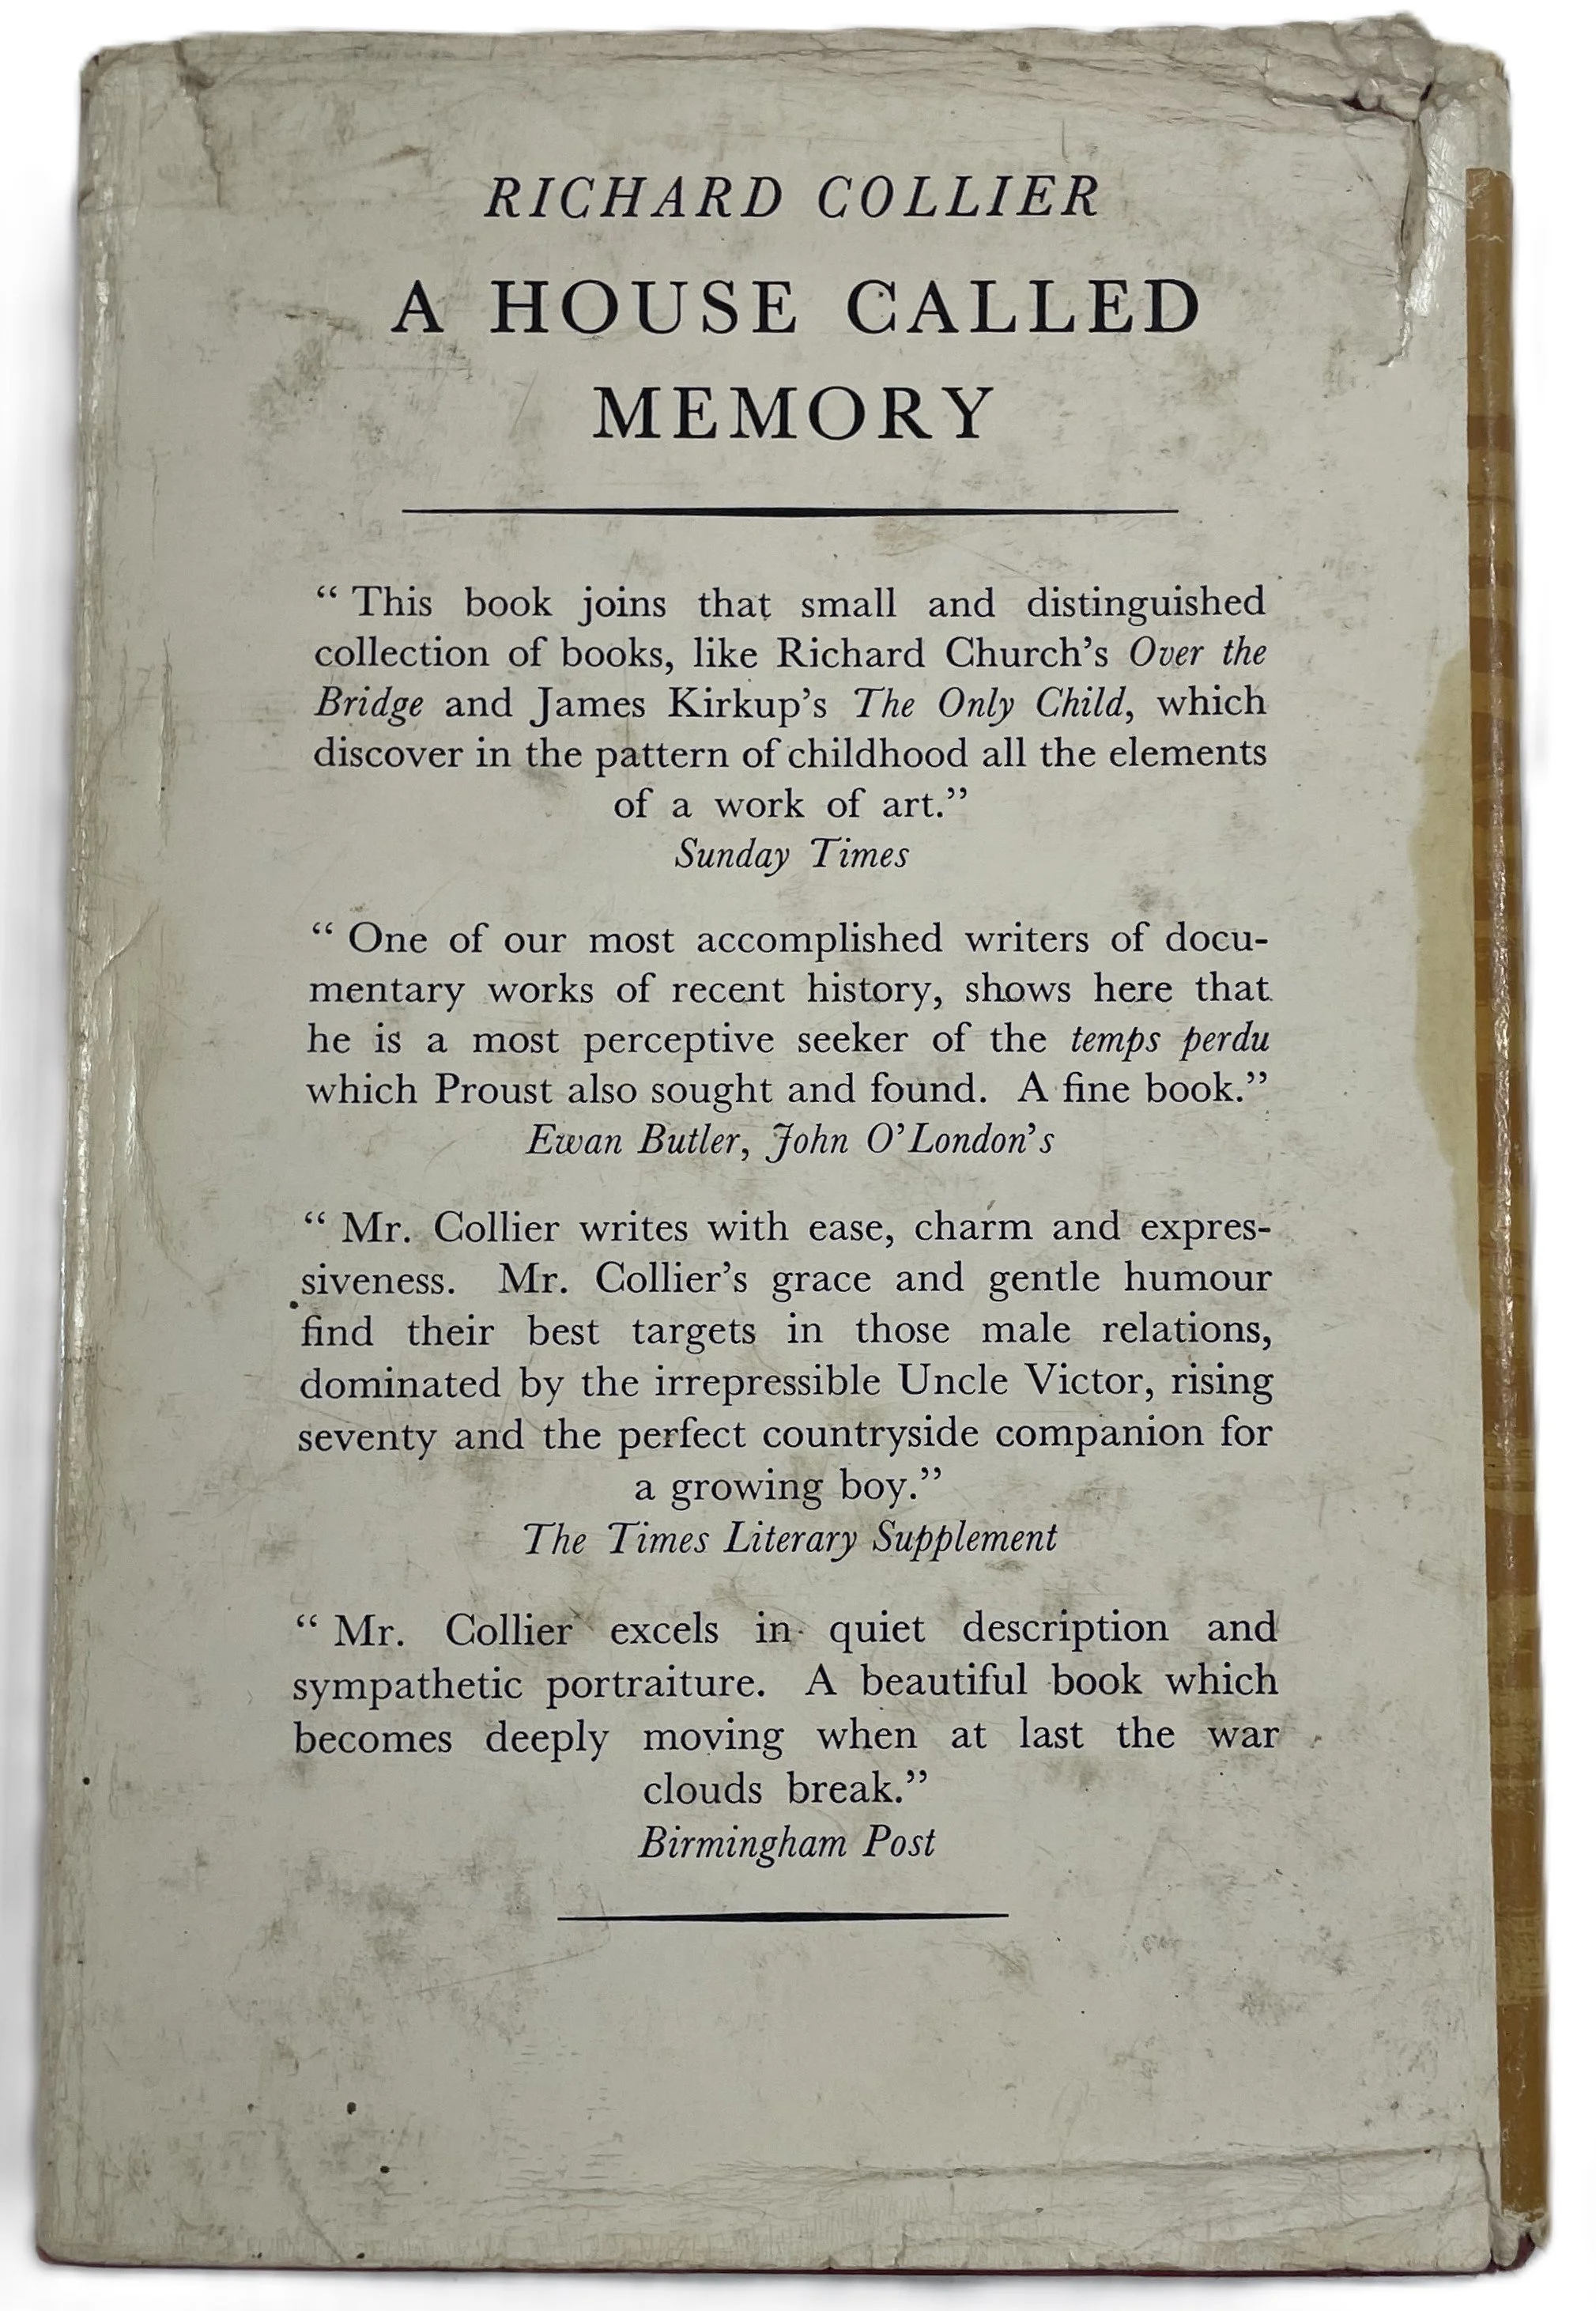 RICHARD COLLIER
A HOUSE CALLED
MEMORY
“ This book joins that small and distinguished
collection of books, like Richard Church’s Over the
Bridge and James Kirkup’s The Only Child, which
discover in the pattern of childhood all the elements
of a work of art.”
Sunday Times
“ One of our most accomplished writers of docu-
mentary works of recent history, shows here that
he is a most perceptive seeker of the temps perdu
which Proust also sought and found. A fine book.”
Ewan Butler, John O’London’s
“ Mr. Collier writes with ease, charm and expres-
siveness. Mr. Collier’s grace and gentle humour
find their best targets in those male relations,
dominated by the irrepressible Uncle Victor, rising
seventy and the perfect countryside companion for
a growing boy.”
The Times Literary Supplement
“ Mr. Collier excels in quiet description and
sympathetic portraiture. A beautiful book which
becomes deeply moving when at last the war
clouds break.”
Birmingham Post